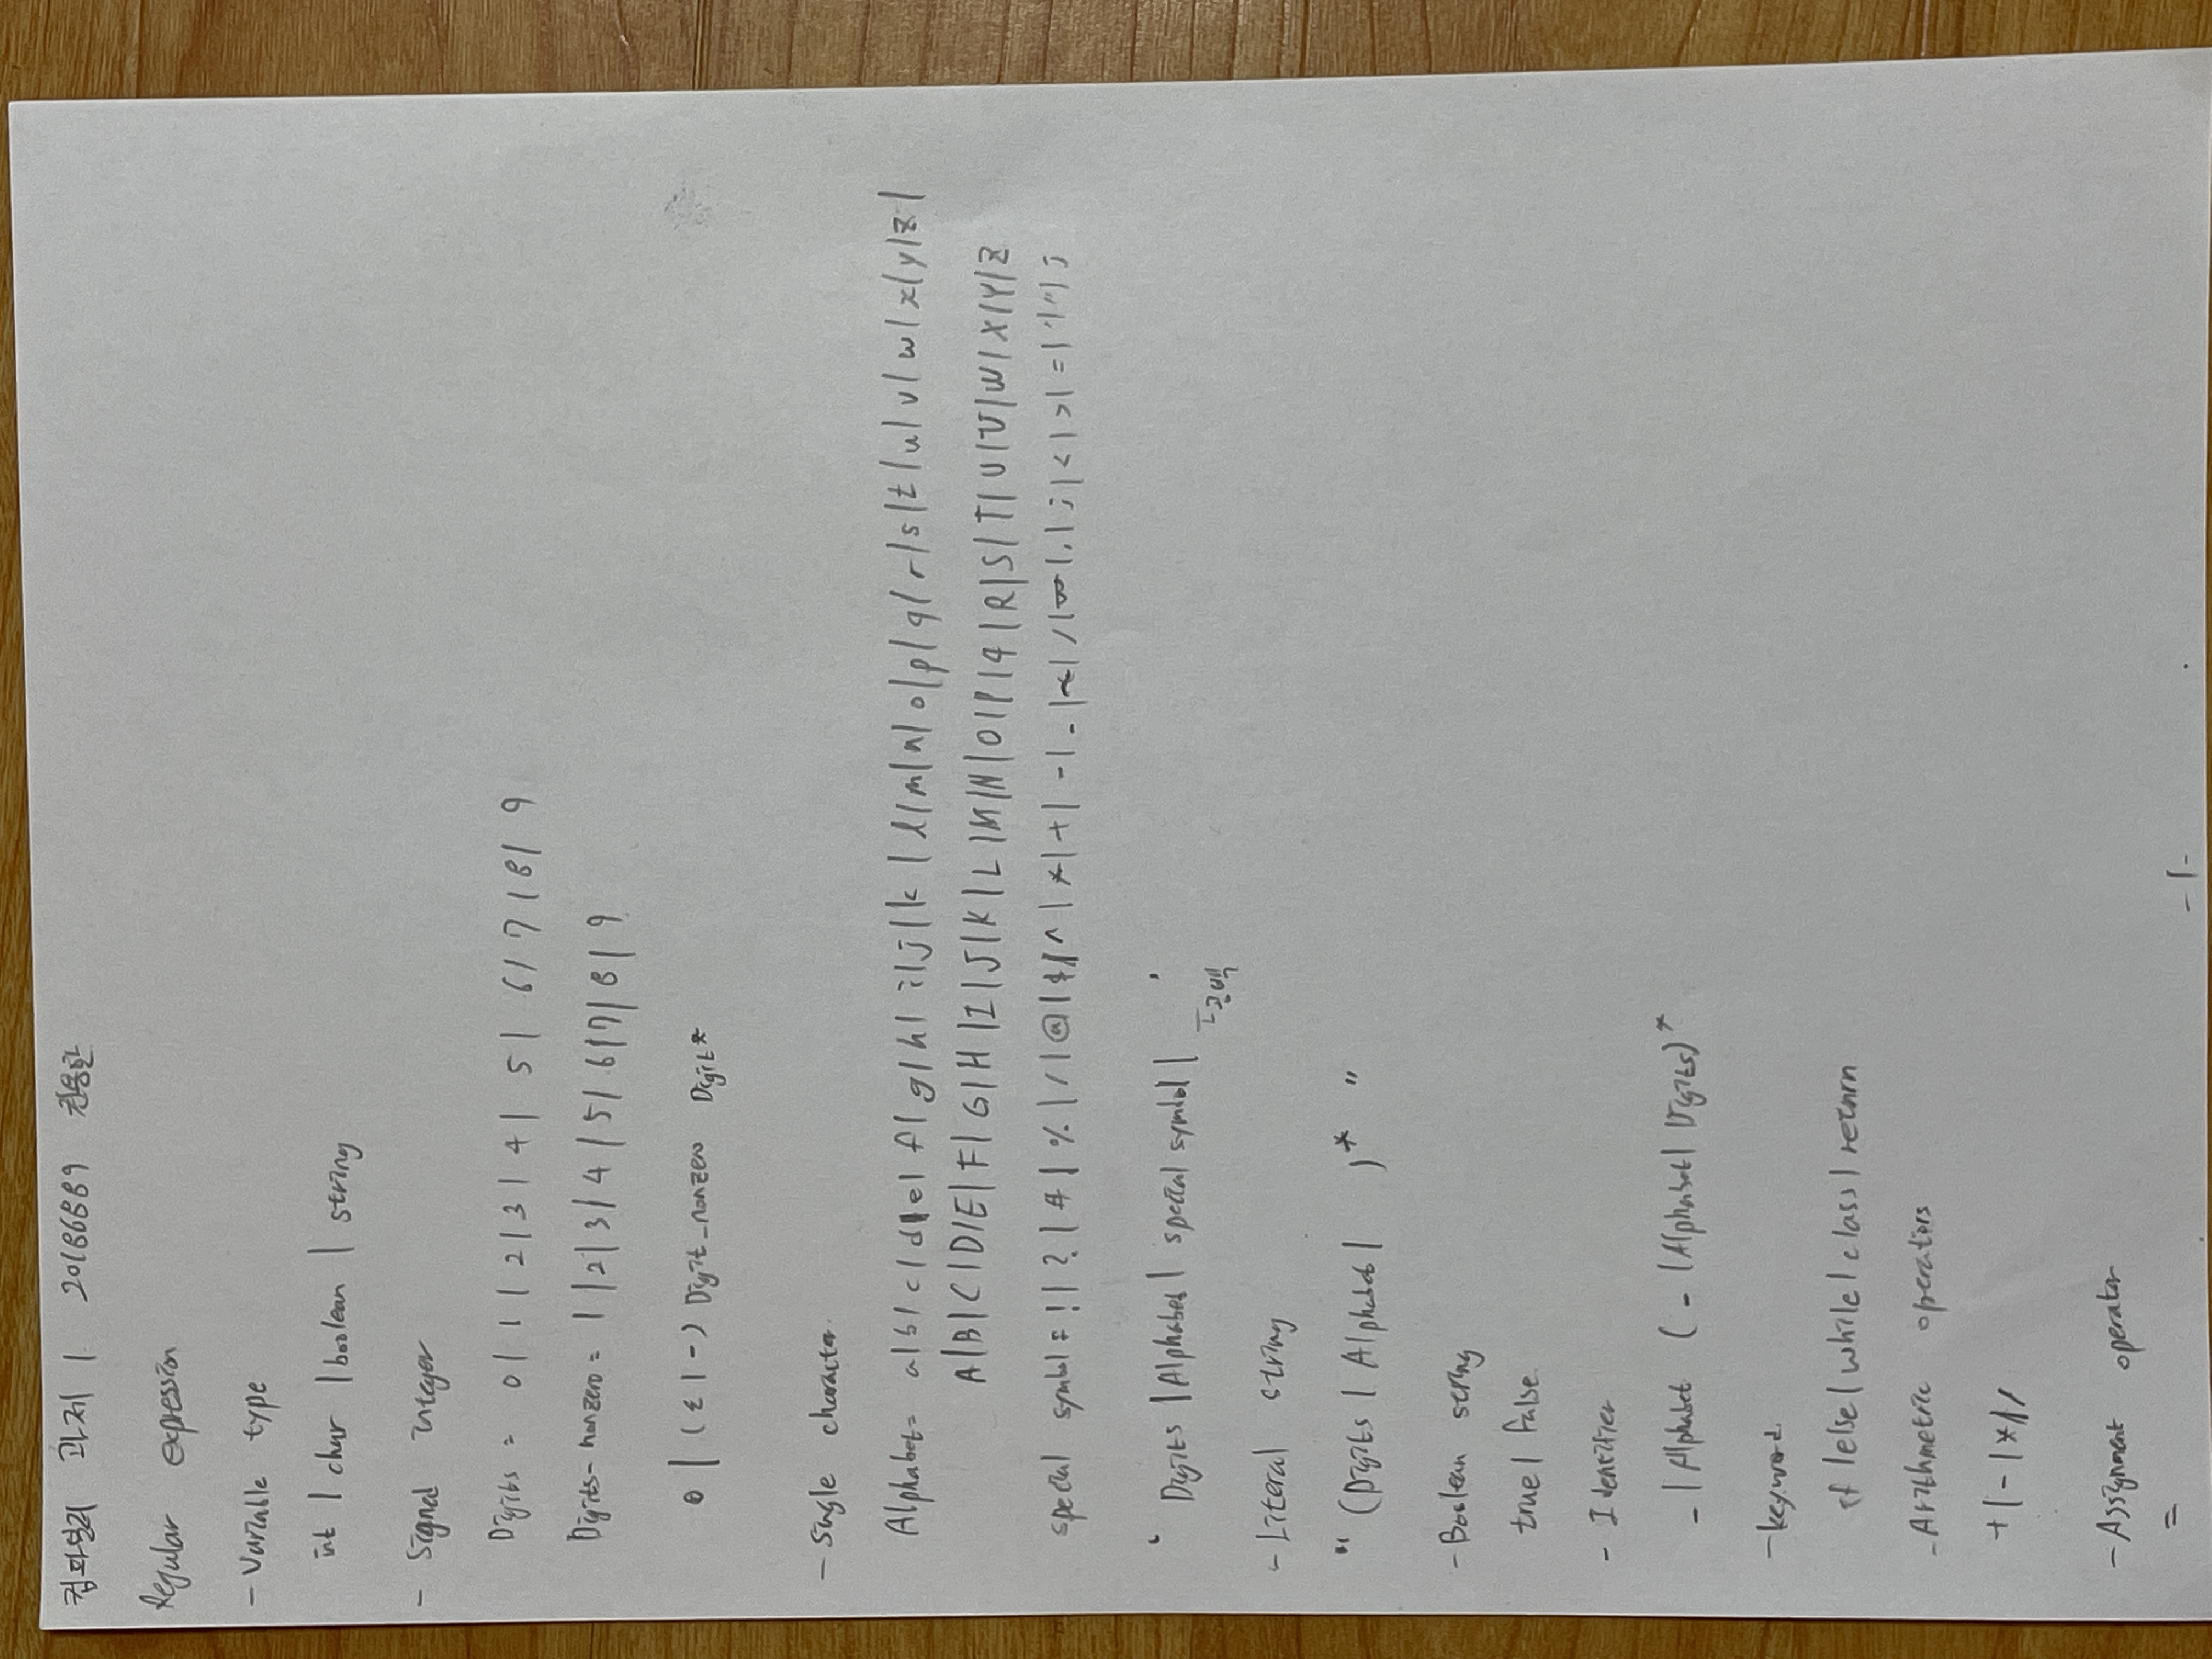 컴파일러 과제 1 20186889 권용한
Regular expression
- Variable type
int | char | boolean | string
- Signed integer
Digits = 0 | 1 | 2 | 3 | 4 | 5 | 6 | 7 | 8 | 9
Digits-nonzero = 1 | 2 | 3 | 4 | 5 | 6 | 7 | 8 | 9
0 | (ε | -) Digit_nonzero Digit*
- Single character
Alphabet = a | b | c | d | e | f | g | h | i | j | k | l | m | n | o | p | q | r | s | t | u | v | w | x | y | z |
A | B | C | D | E | F | G | H | I | J | K | L | M | N | O | P | q | R | S | T | U | V | W | X | Y | Z
special symbol = ! | ? | # | % | / | @ | $ | ^ | * | + | - | _ | ~ | / | | . | ; | < | > | = | ' | " | ;
‘ Digits | Alphabet | special symbol | ’
공백
- Literal string
“ (Digits | Alphabet | )* ”
- Boolean string
true | false
- Identifier
_ | Alphabet ( _ | Alphabet | Digits)*
- keyword
if | else | while | class | return
- Arithmetric operators
+ | - | * | /
- Assignment operator
=
-1-